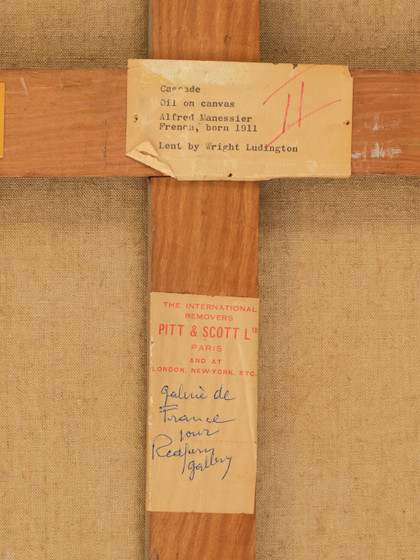 Cascade
Oil on canvas
Alfred Manessier
French, born 1911
Lent by Wright Ludington
II
THE INTERNATIONAL
REMOVERS
PITT & SCOTT LTD
PARIS
AND AT
LONDON, NEW-YORK, ETC.
galerie de
France
pour
Redfern
gallery